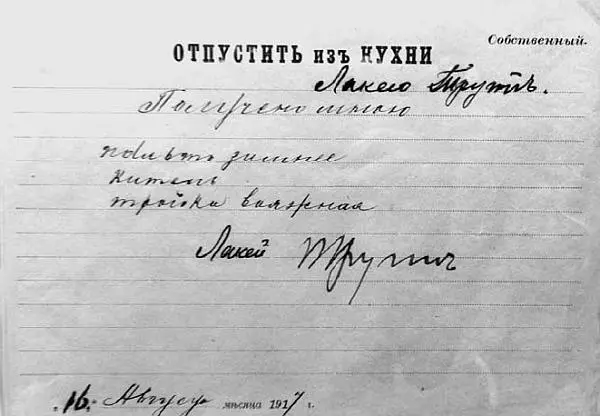 Собственный.
ОТПУСТИТЬ изъ КУХНИ
Лакею Труппъ.
Получено мною
пальто зимнее
китель
тройка вояжная
Лакей Труппъ
16 Августа мѣсяца 1917 г.